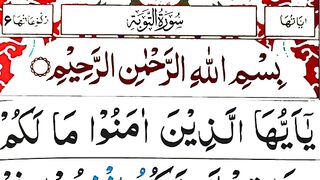 اٰیَاتُهَا سُوْرَةُ التَّوْبَة رُكُوْعَاتُهَا ۶
بِسْمِ اللهِ الرَّحْمٰنِ الرَّحِيْمِ
يٰۤاَيُّهَا الَّذِيْنَ اٰمَنُوْا مَا لَكُمْ